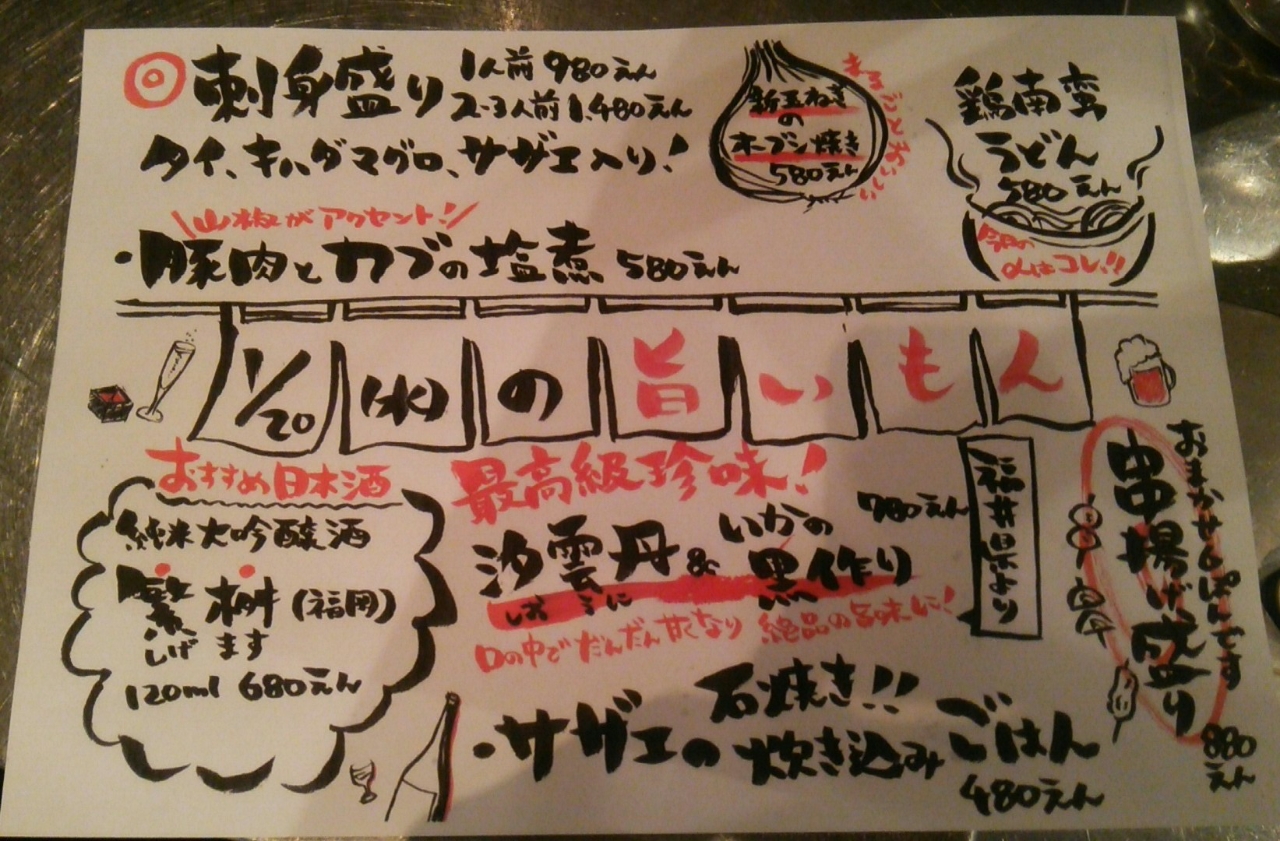 刺身盛り
1人前 980えん
2-3人前 1.480えん
タイ、キハダマグロ、サザエ入り!
新玉ねぎ
の
オーブン焼き
580えん
まるごとおいしい
鶏南蛮
うどん
580えん
今日の
〆はコレ!!
\山椒がアクセント!/
・豚肉とカブの塩煮 580えん
1/20 (水) の旨いもん
おすすめ日本酒
純米大吟醸酒
繁桝 (福岡)
しげ ます
120ml 680えん
最高級珍味!
汐雲丹 & いかの黒作り 780えん
しお うに
口の中でだんだん甘くなり 絶品の旨味に!
福井県より
おまかせ6ぽんです
串揚げ盛り
880えん
・サザエの石焼き!!
炊き込みごはん
480えん